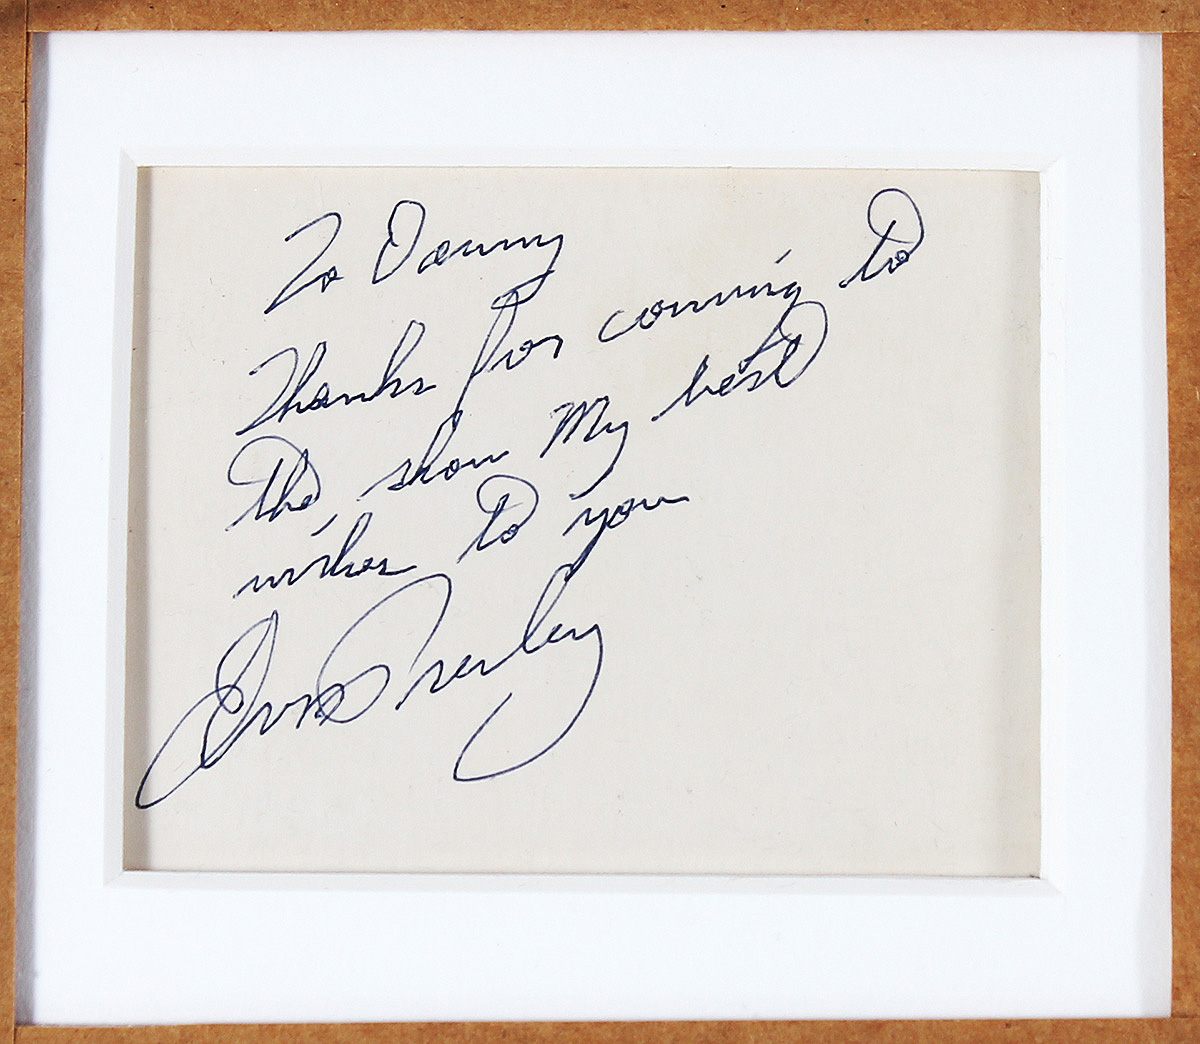 To Danny
Thanks for coming to
the show My best
wishes to you
Elvis Presley